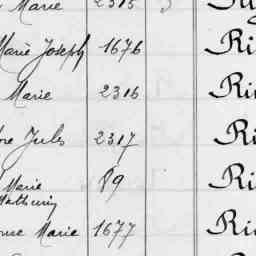 Marie 2315
Marie Joseph 1676 Ri
Marie 2316 Ri
Jules 2317 Ri
Marie 89 Ri
Mathurin
Marie 1677 Ri